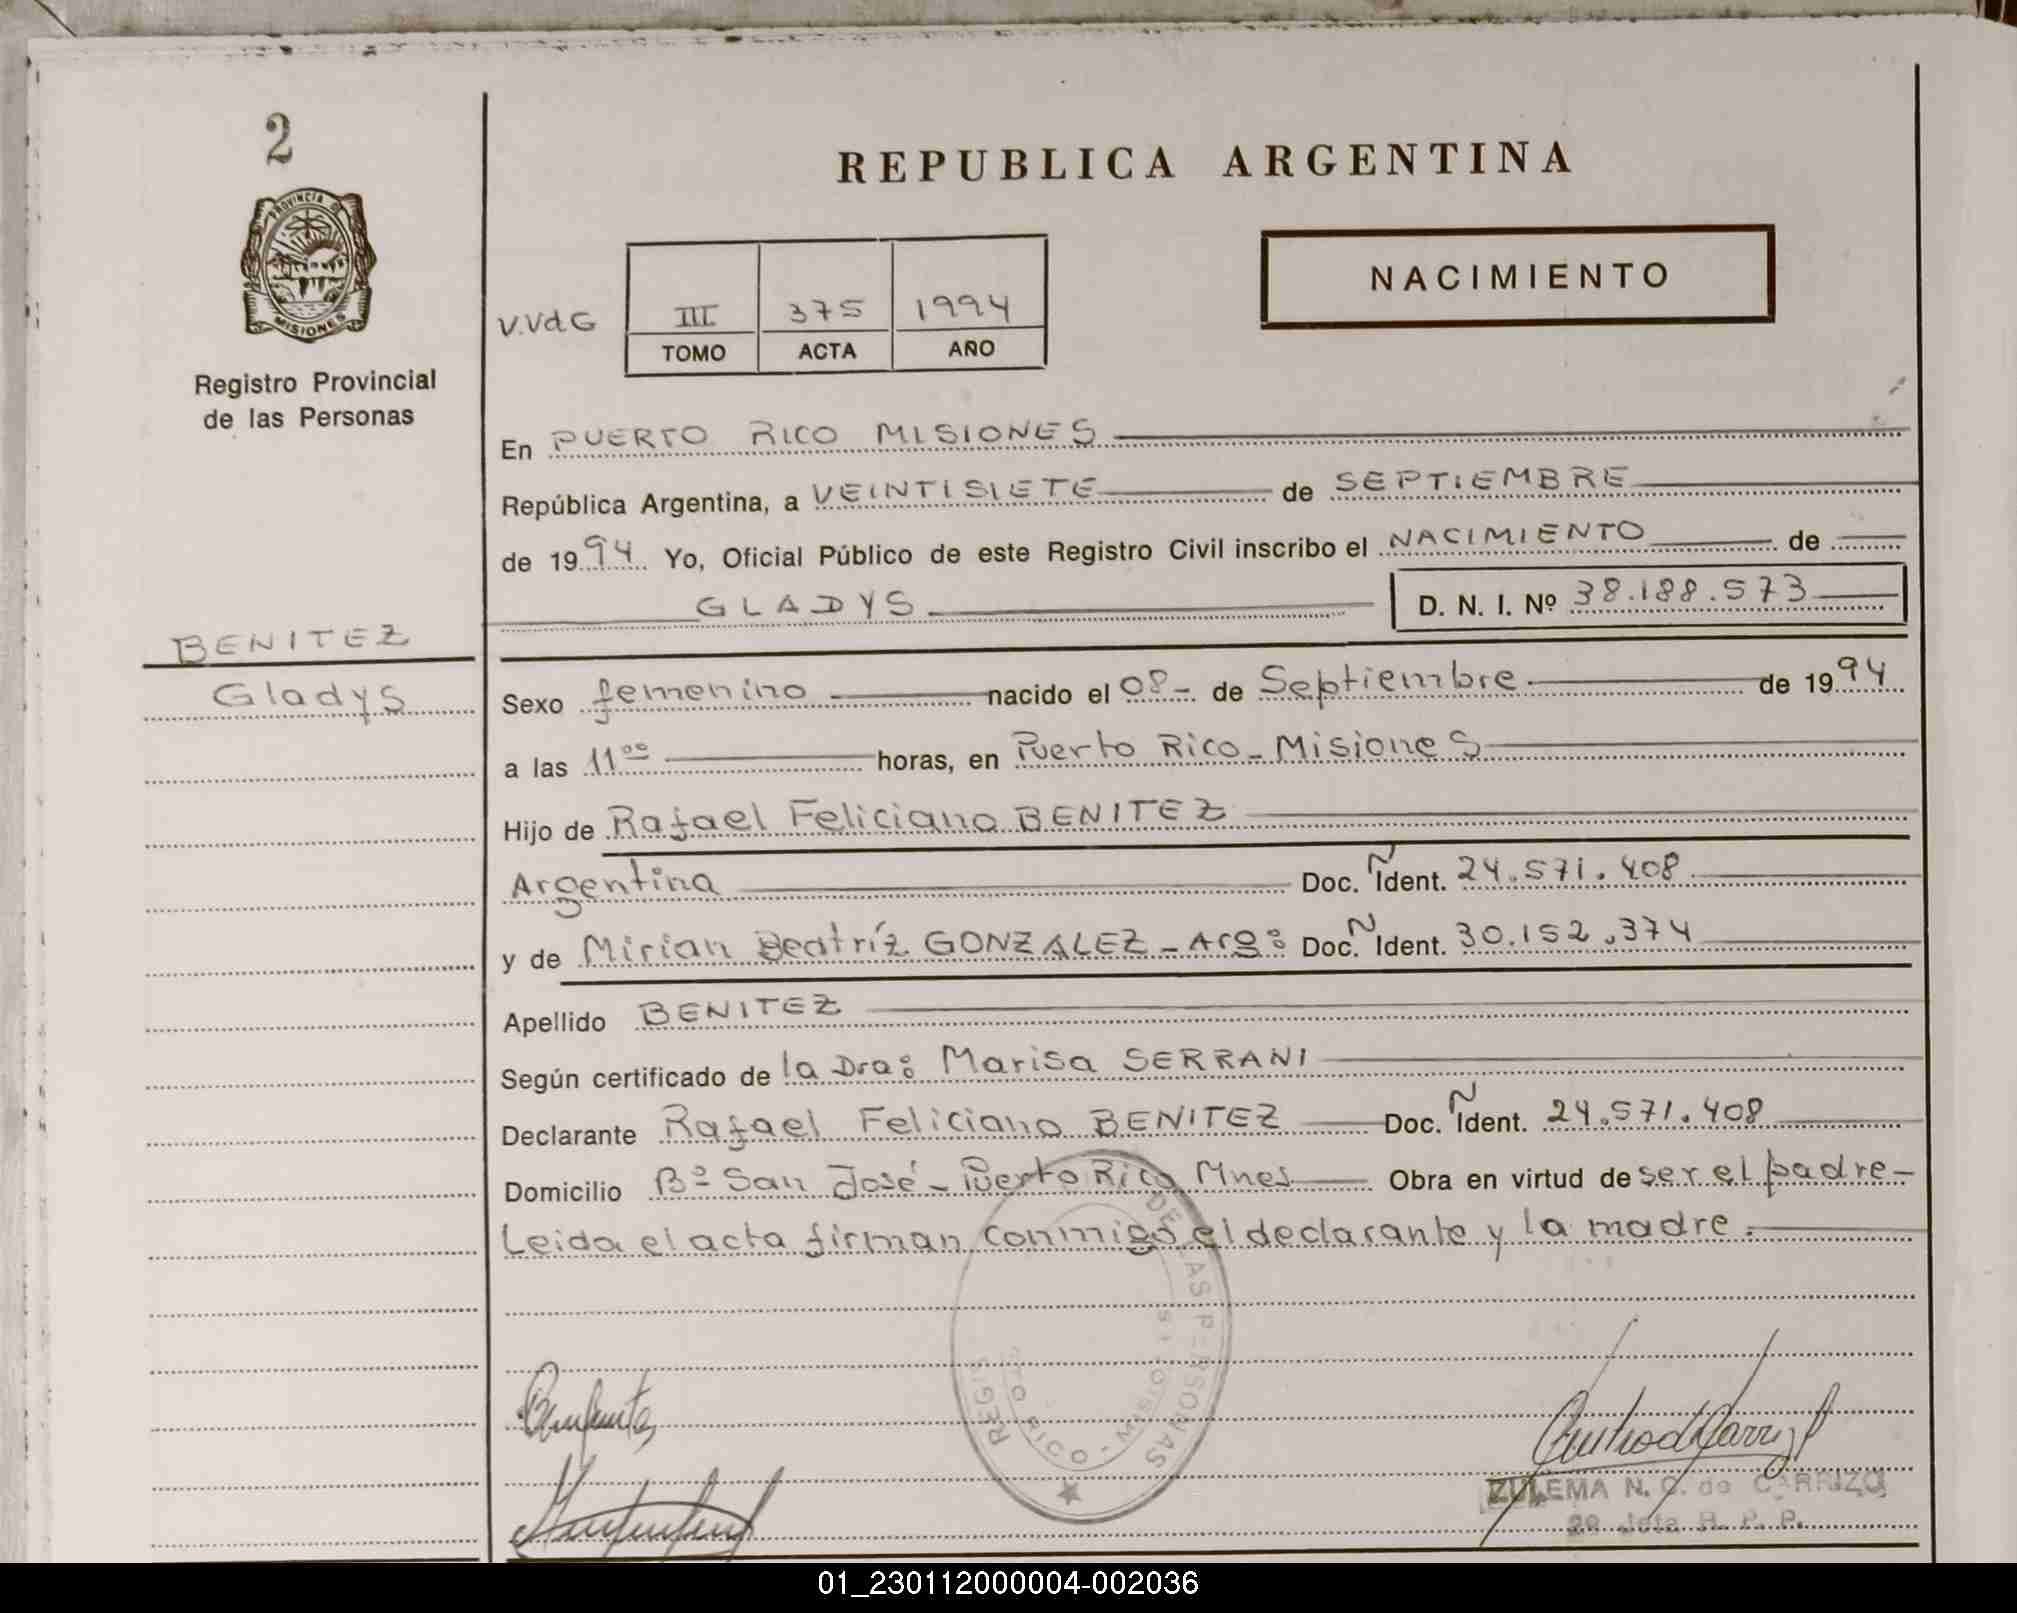 2
PROVINCIA DE
MISIONES
Registro Provincial
de las Personas
REPUBLICA ARGENTINA
V.VdG
III 375 1994
TOMO ACTA AÑO
NACIMIENTO
En PUERTO RICO MISIONES
República Argentina, a VEINTISIETE de SEPTIEMBRE
de 1994 Yo, Oficial Público de este Registro Civil inscribo el NACIMIENTO de
GLADYS D. N. I. Nº 38.188.573
BENITEZ
Gladys
Sexo femenino nacido el 08- de Septiembre de 1994
a las 11⁰⁰ horas, en Puerto Rico - Misiones
Hijo de Rafael Feliciano BENITEZ
Argentina Doc. Ñ Ident. 24.571.408
y de Mirian Beatríz GONZALEZ - Arg: Doc. Ñ Ident. 30.152.374
Apellido BENITEZ
Según certificado de la Dra: Marisa SERRANI
Declarante Rafael Feliciano BENITEZ Doc. Ñ Ident. 24.571.408
Domicilio Bº San José - Puerto Rico Mnes Obra en virtud de ser el padre-
Leida el acta firman conmigo el declarante y la madre.
DE LAS PERSONAS
RICO - MISIONES
ZULEMA N. C. de CARRIZO
2º Jefa R. P. P.
01_230112000004-002036